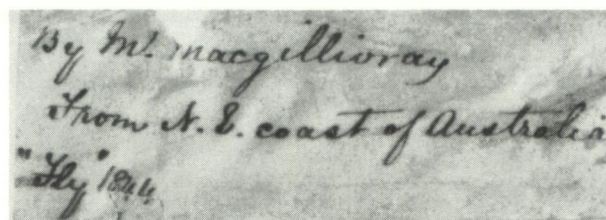 By Mr. Macgillivray
From N. E. coast of Australia
"Fly" 1844